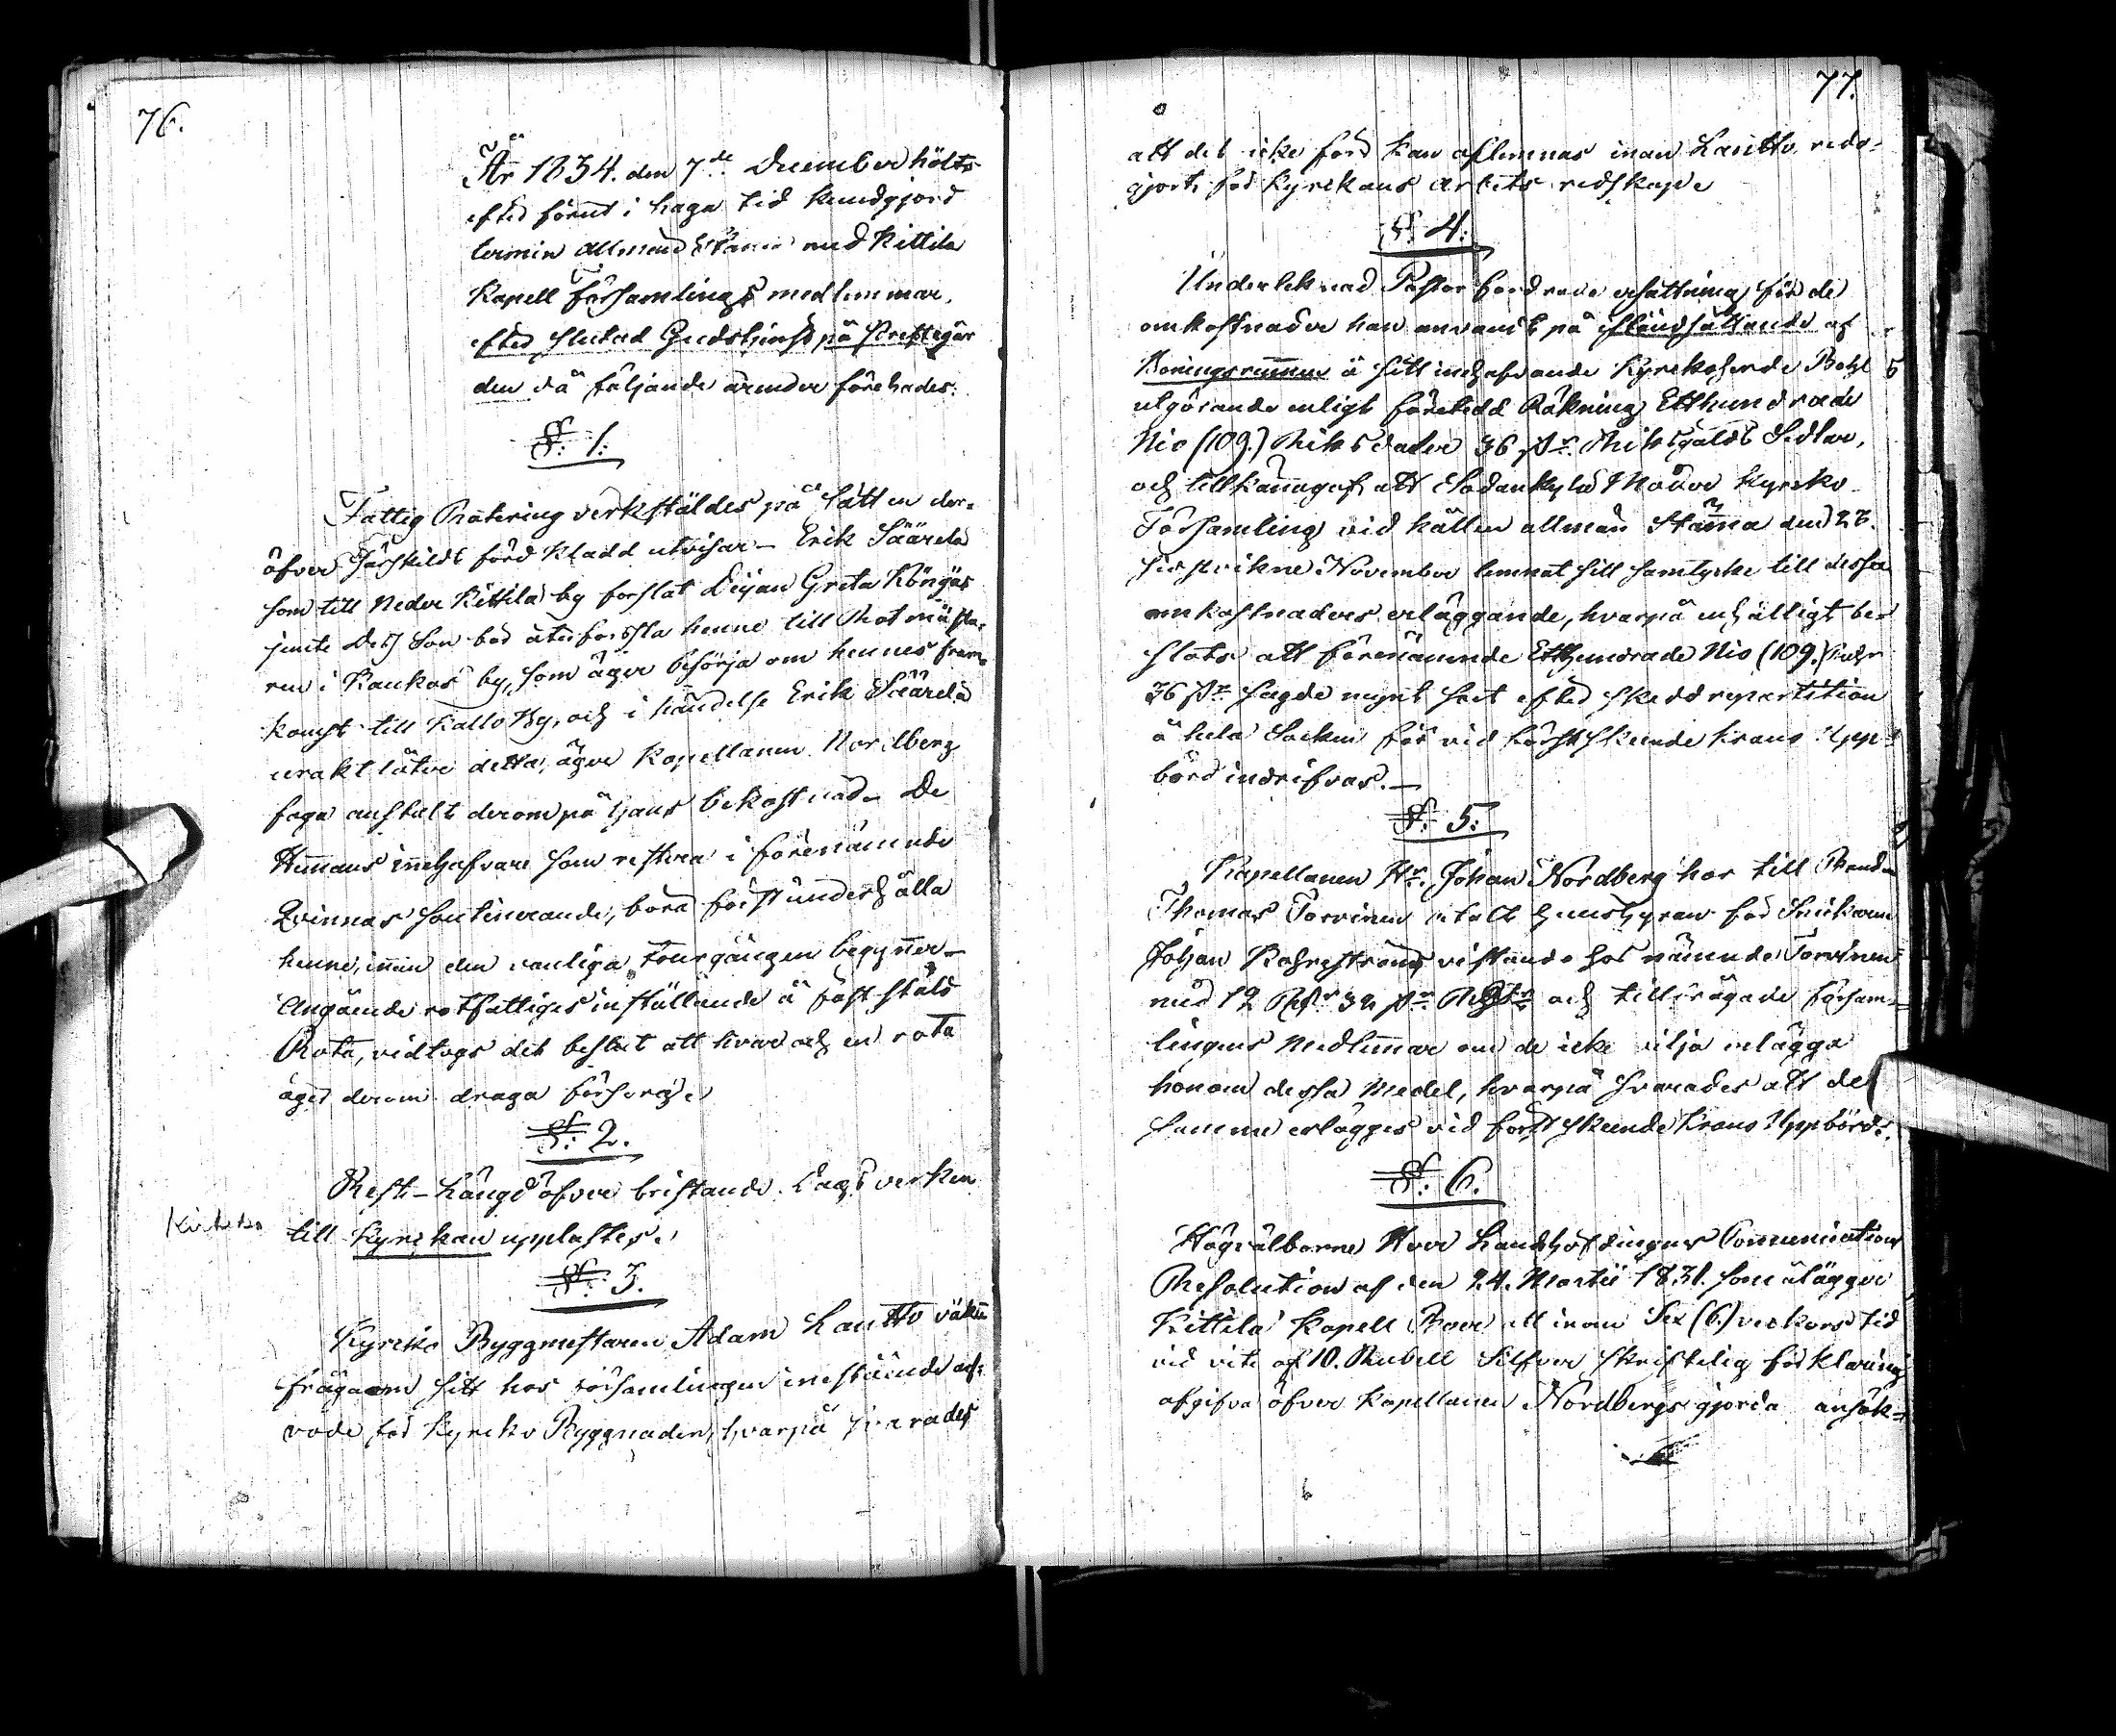 76.
År 1834. den 7de December hölts
efter förut i laga tid kundgjord
termin allmän Stämma med Kittila
Kapell Församlings medlemmar,
efter slutad Gudstjenst på Prestegår
den då följande ärender förehades:
§: 1:
Fattig Rotering verkställdes på sätt en der-
öfver särskildt förd Kladd utvisar – Erik Säärelä
som till Neder Kittilä by forslat Pigan Greta Köngäs
jemte dess Son bör återforssla henne till Rotmästa-
ren i Kaukos by, som äger besörja om hennes fram-
komst till Kallo by, och i händelse Erik Säärelä
uraktlåter detta, äger Kapellanen Nordberg
foga anstalt derom på hans bekostnad. De
Hemmans innehafvare som restera i förenämnde
Qvinnas soutinerande, böra först underhålla
henne, innan den vanliga tourgången begynner –
Angående rotfattiges inställande å fastställd
Rota, vidtogs det beslut att hvar och en rota
äger derom draga försorg.
§: 2.
Rest-Längd öfver bristande Dagsverken
till Kyrckan upplästes.
Kirkko
§: 3.
Kyrcko Byggmestaren Adam Lautto väkte
fråga om sitt hos församlingen inestående ar-
vode för Kyrcko Byggnaden, hvarpå svarades
77.
att det icke förr kan aflemnas inan Lautto redo-
gjort för Kyrckans arbets redskap.
§: 4:
Undertecknad Pastor fordrade ersättning för de
omkostnader han användt på iståndsättande af
Boningsrummen å sitt innehafvande Kyrckoherde Bohl
utgörande enligt företedd Räkning Etthundrade
Nio (109.) Riksdaler 36 sk. Riksgälds Sedlar,
och tillkännagaf att Sodankylä Moder Kyrcko
Församling vid hållen allmän Stämma den 23.
sistvikne November lemnat sitt samtycke till dessa
omkostnaders erläggande, hvarpå enhälligt be-
slöts att förenämnde Etthundrade Nio (109.) Rdr
36 sk. sagde mynt sort efter skedd repartition
å hela Socken får vid först skeende Krono Upp-
börd indrifvas. –
§: 5:
Kapellanen Hr. Johan Nordberg har till Bonden
Thomas Torvinen betalt hushyran för Snickaren
Johan Rahnström vistande hos nämnde Torvinen
med 12 Rdr 32 sk. Rgds och tillfrågade försam-
lingens Medlemmar om de icke vilja erlägga
honom dessa Medel, hvarpå svarades att de
samme erlägges vid först skeende Krono Uppbörd.
§: 6.
Högvälborne Herr Landshöfdingens Communications
Resolution af den 24. Martii 1831. som ålägger
Kittilä Kapell Boer att inom Sex (6.) veckors tid
vid vite af 10. Rubell Silfver skriftelig förklaring
afgifva öfver Kapellanen Nordbergs gjorda ansök-